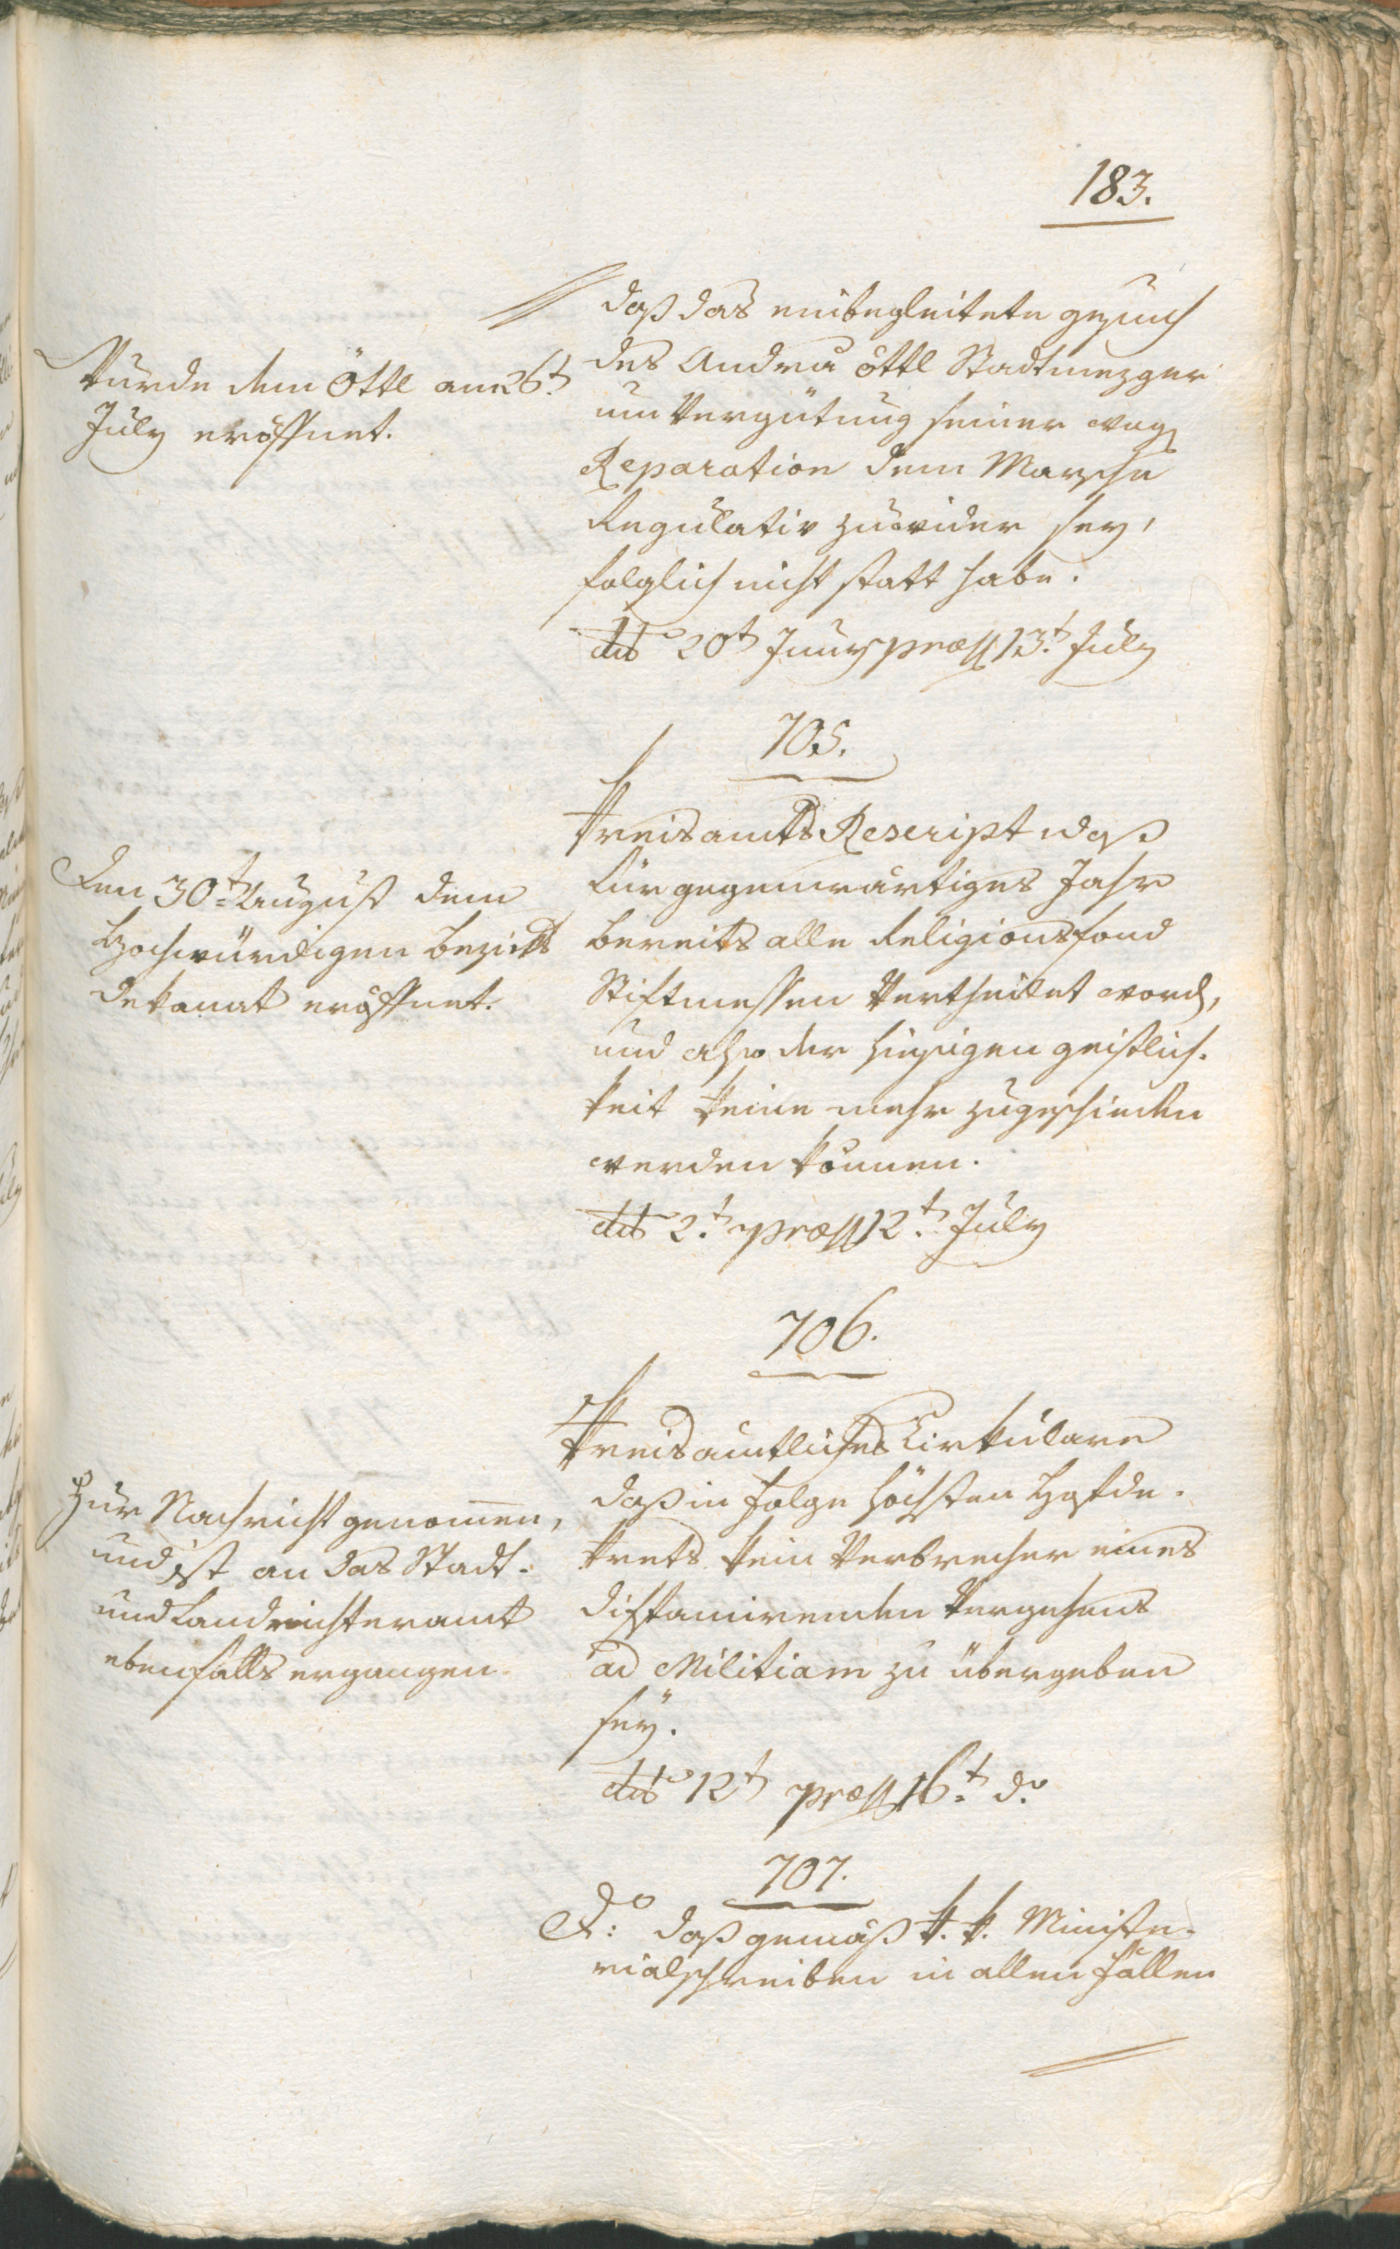 183.
daß das einbegleitete Gesuch
des Andrä Öttl Stadtmezger
um Vergütung seiner Wag
Reparation dem Marsche
Regulativ zuwider sey,
folglich nicht statt habe.
dto 20t Juny præs 13.t July
Wurde dem Öttl am 26t.
July eröffnet.
705.
Kreisamts Rescript daß
für gegenwärtiges Jahr
bereits alle Religionsfond
Stiftmessen Vertheilet word,
und also der hiesigen Geistlich-
keit keine mehr zugeschieden
werden können.
dto 2.t præs 12.t July
Den 30t August dem
Hochwürdigen Bezirks
Dekanat eröffnet.
706.
Kreisamtliches Cirkulare
daß in Folge höchsten Hofde-
krets kein Verbrecher eines
diffamirenden Vergehens
ad Militiam zu übergeben
seÿ.
dto 12t præs 16.t do
Zur Nachricht genomen,
und ist an das Stadt-
und Landrichteramt
ebenfalls ergangen.
707.
Do: daß gemäß k. k. Ministe-
rialschreiben in allen Fällen